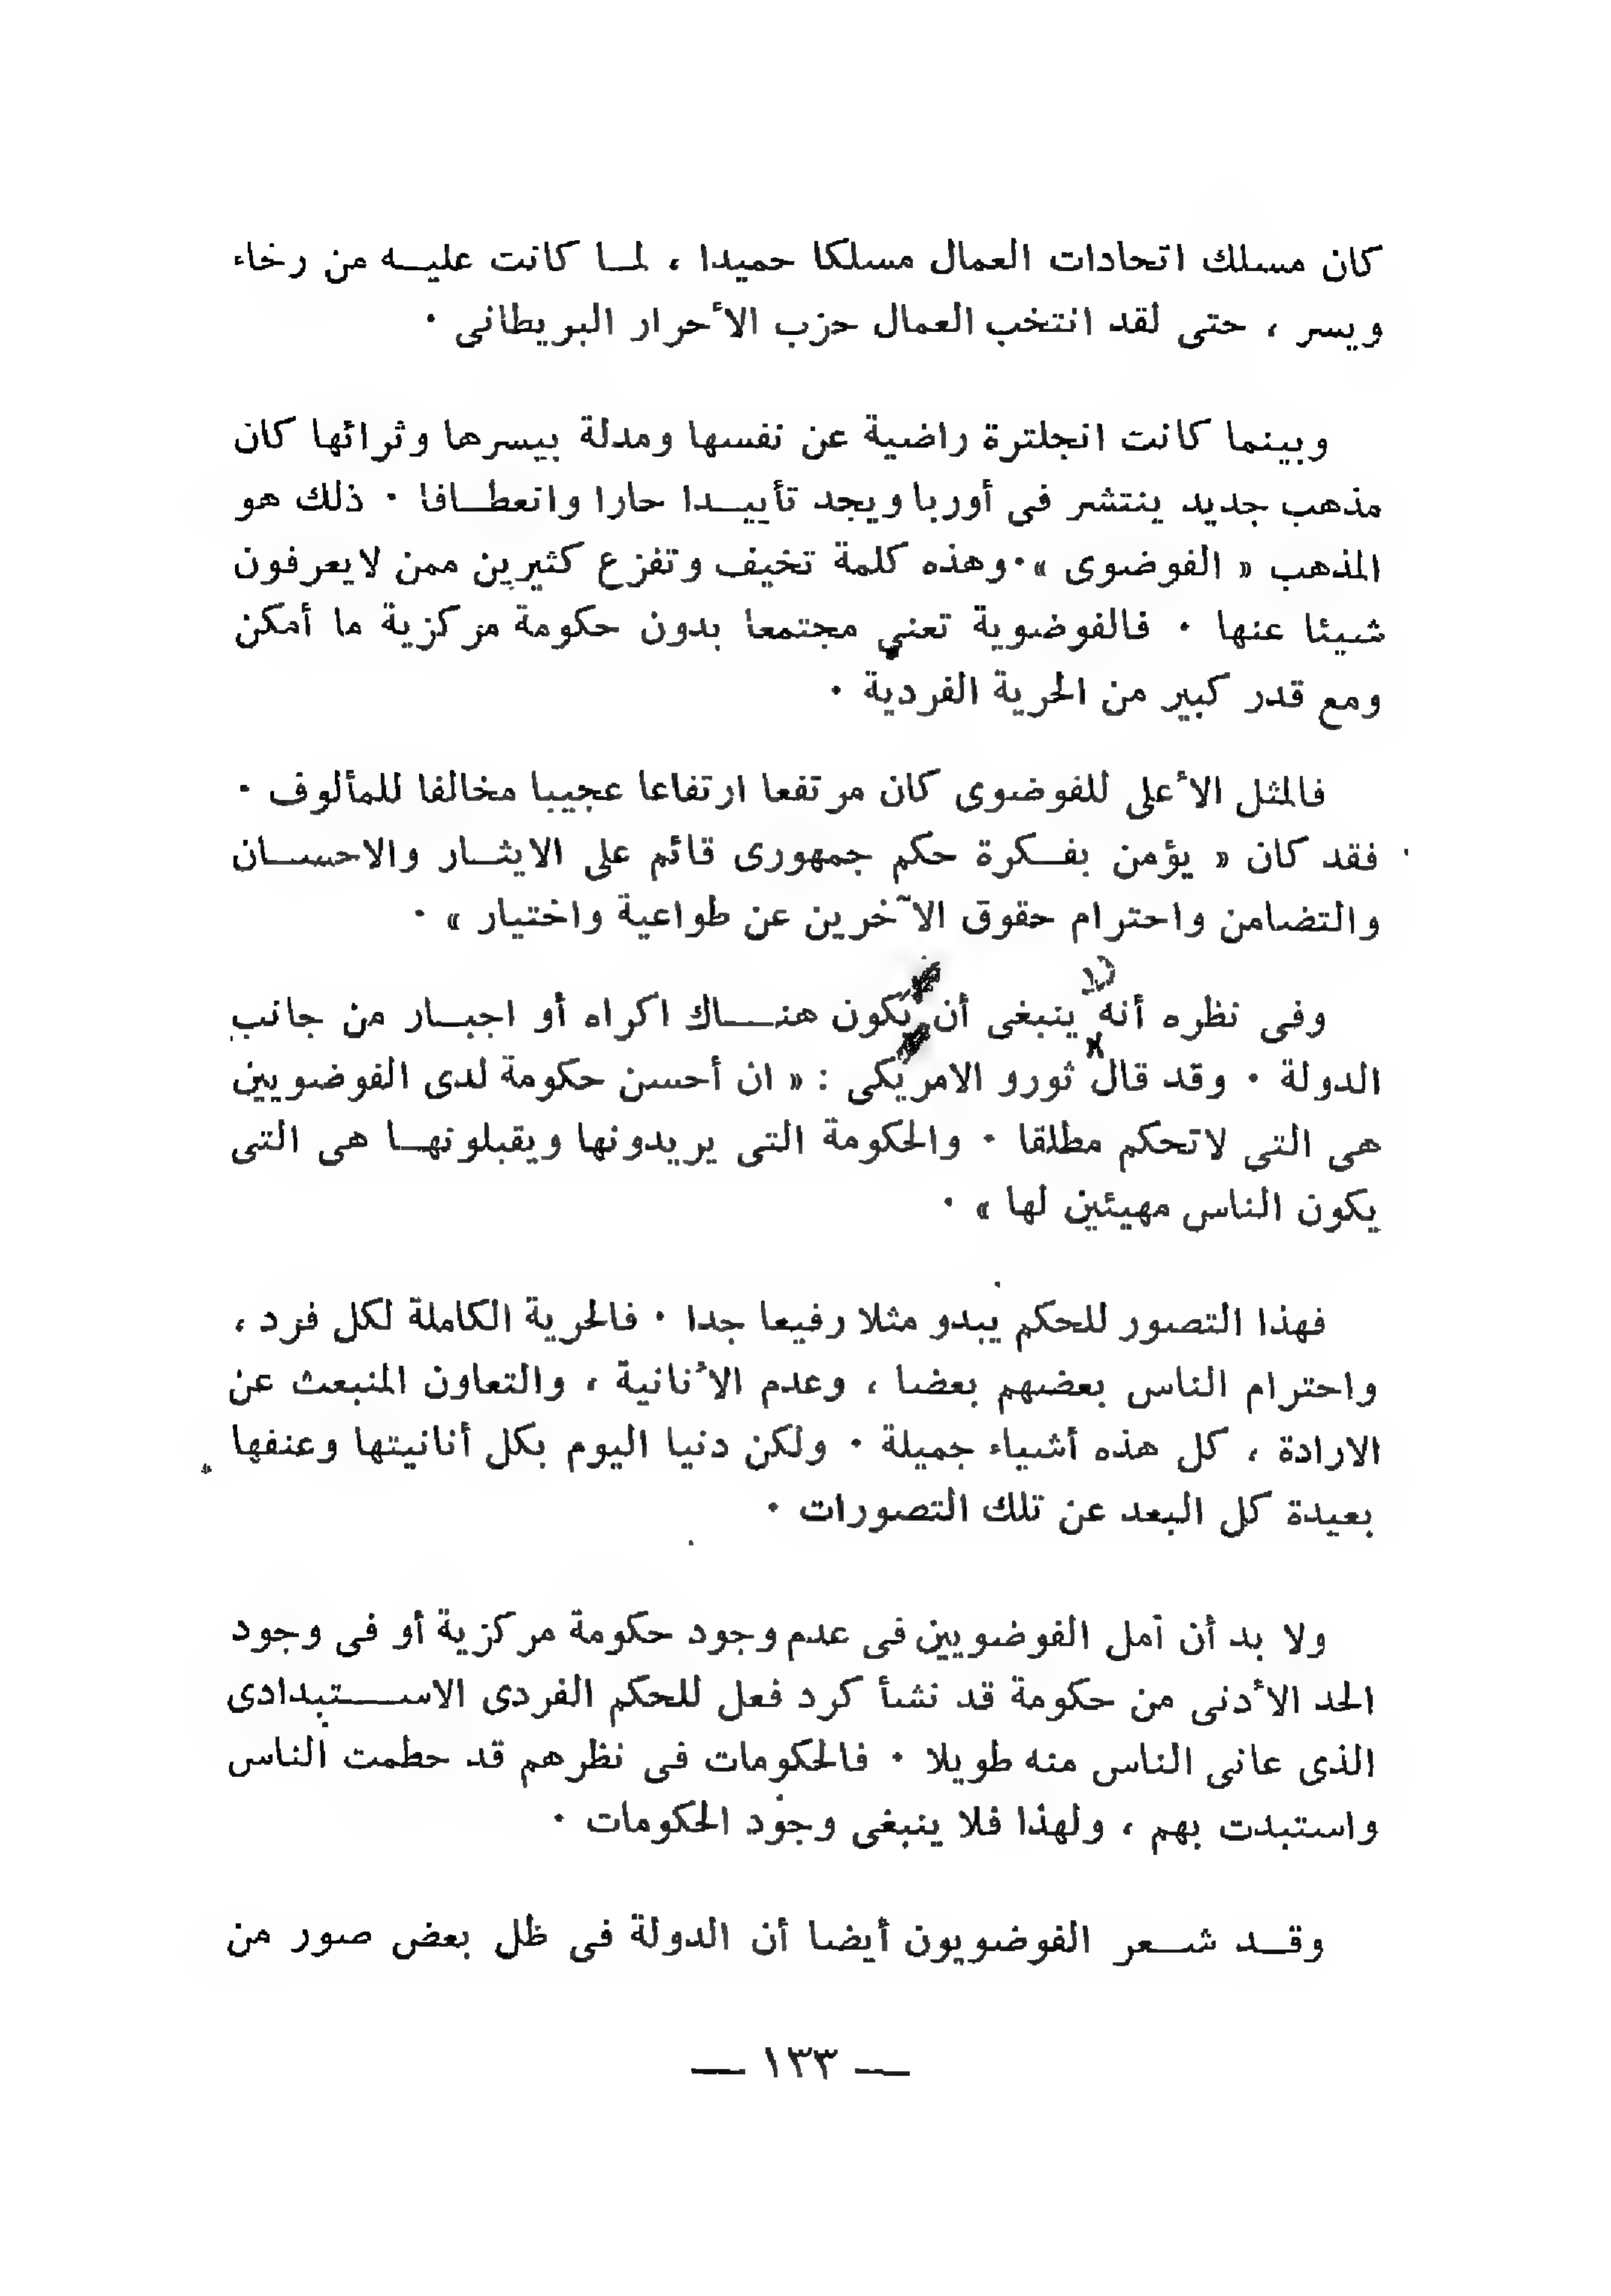 كان مسلك اتحادات العمال مسلكا حميدا ، لمـا كانت عليـه من رخاء
ويسر ، حتى لقد انتخب العمال حزب الأحرار البريطانى ٠
وبينما كانت انجلترة راضية عن نفسها ومدلة بيسرها وثرائها كان
مذهب جديد ينتشر فى أوربا ويجد تأييـدا حارا وانعطـافا ٠ ذلك هو
المذهب « الفوضوى »٠وهذه كلمة تخيف وتفزع كثيرين ممن لايعرفون
شيئا عنها ٠ فالفوضوية تعنى مجتمعا بدون حكومة مركزية ما أمكن
ومع قدر كبير من الحرية الفردية ٠
فالمثل الأعلى للفوضوى كان مرتفعا ارتفاعا عجيبا مخالفا للمألوف ٠
فقد كان « يؤمن بفـكرة حكم جمهورى قائم على الايثـار والاحسـان
والتضامن واحترام حقوق الآخرين عن طواعية واختيار » ٠
وفى نظره أنه ينبغى أن يكون هنـاك اكراه أو اجبـار من جانب
الدولة ٠ وقد قال ثورو الامريكى : « ان أحسن حكومة لدى الفوضويين
هى التى لاتحكم مطلقا ٠ والحكومة التى يريدونها ويقبلونهـا هى التى
يكون الناس مهيئين لها » ٠
فهذا التصور للحكم يبدو مثلا رفيعا جدا ٠ فالحرية الكاملة لكل فرد ،
واحترام الناس بعضهم بعضا ، وعدم الأنانية ، والتعاون المنبعث عن
الارادة ، كل هذه أشياء جميلة ٠ ولكن دنيا اليوم بكل أنانيتها وعنفها
بعيدة كل البعد عن تلك التصورات ٠
ولا بد أن أمل الفوضويين فى عدم وجود حكومة مركزية أو فى وجود
الحد الأدنى من حكومة قد نشأ كرد فعل للحكم الفردى الاسـتبدادى
الذى عانى الناس منه طويلا ٠ فالحكومات فى نظرهم قد حطمت الناس
واستبدت بهم ، ولهذا فلا ينبغى وجود الحكومات ٠
وقـد شـعر الفوضويون أيضا أن الدولة فى ظل بعض صور من
— ١٣٣ —